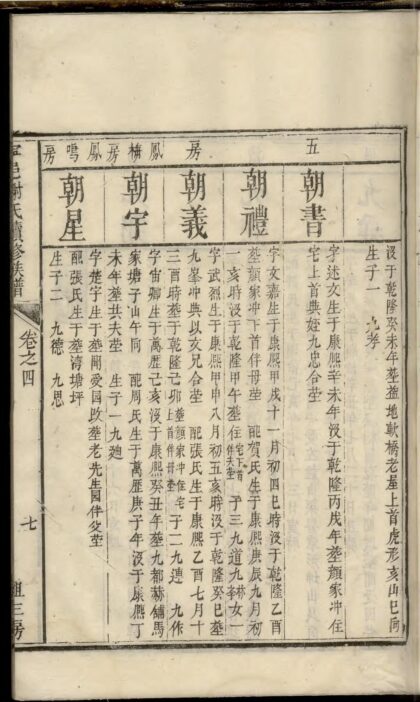 五
房
鳳楠房
鳳鳴房
沒于乾隆癸未年塟盤地畝橋老屋上首虎形亥山巳向
生子一 九孝
朝書
字述文生于康熙辛未年沒于乾隆丙戌年塟顏家冲住
宅上首與姪九忠合塋
朝禮
字文嘉生于康熙甲戌十一月初四巳時沒于乾隆乙酉
塟顏家冲下首伴母塋 配賀氏生于康熙庚辰九月初
一亥時沒于乾隆甲午塟住宅下首伴夫塋 子三九道九林九奉女一
朝義
字武烈生于康熙甲申八月初五亥時沒于乾隆癸巳塟
九峯冲與以亥兄合塋 配張氏生于康熙乙酉七月十
三酉時塟于乾隆己卯塟顏家冲住宅上首伴母塋 子二九連 九作
朝宇
字宙卿生于萬曆己亥沒于康熙癸丑年塟九都赫舖馬
家塘子山午向 配周氏生于萬曆庚子年沒于康熙丁
未年塟共夫塋 生子一九廸
朝星
字楚宇生于塟聞愛園歿塟老先生園伴父塋
配張氏生于塟湾塘坪
生子二 九德 九思
寧邑謝氏續修族譜
卷之四
七
祖三房